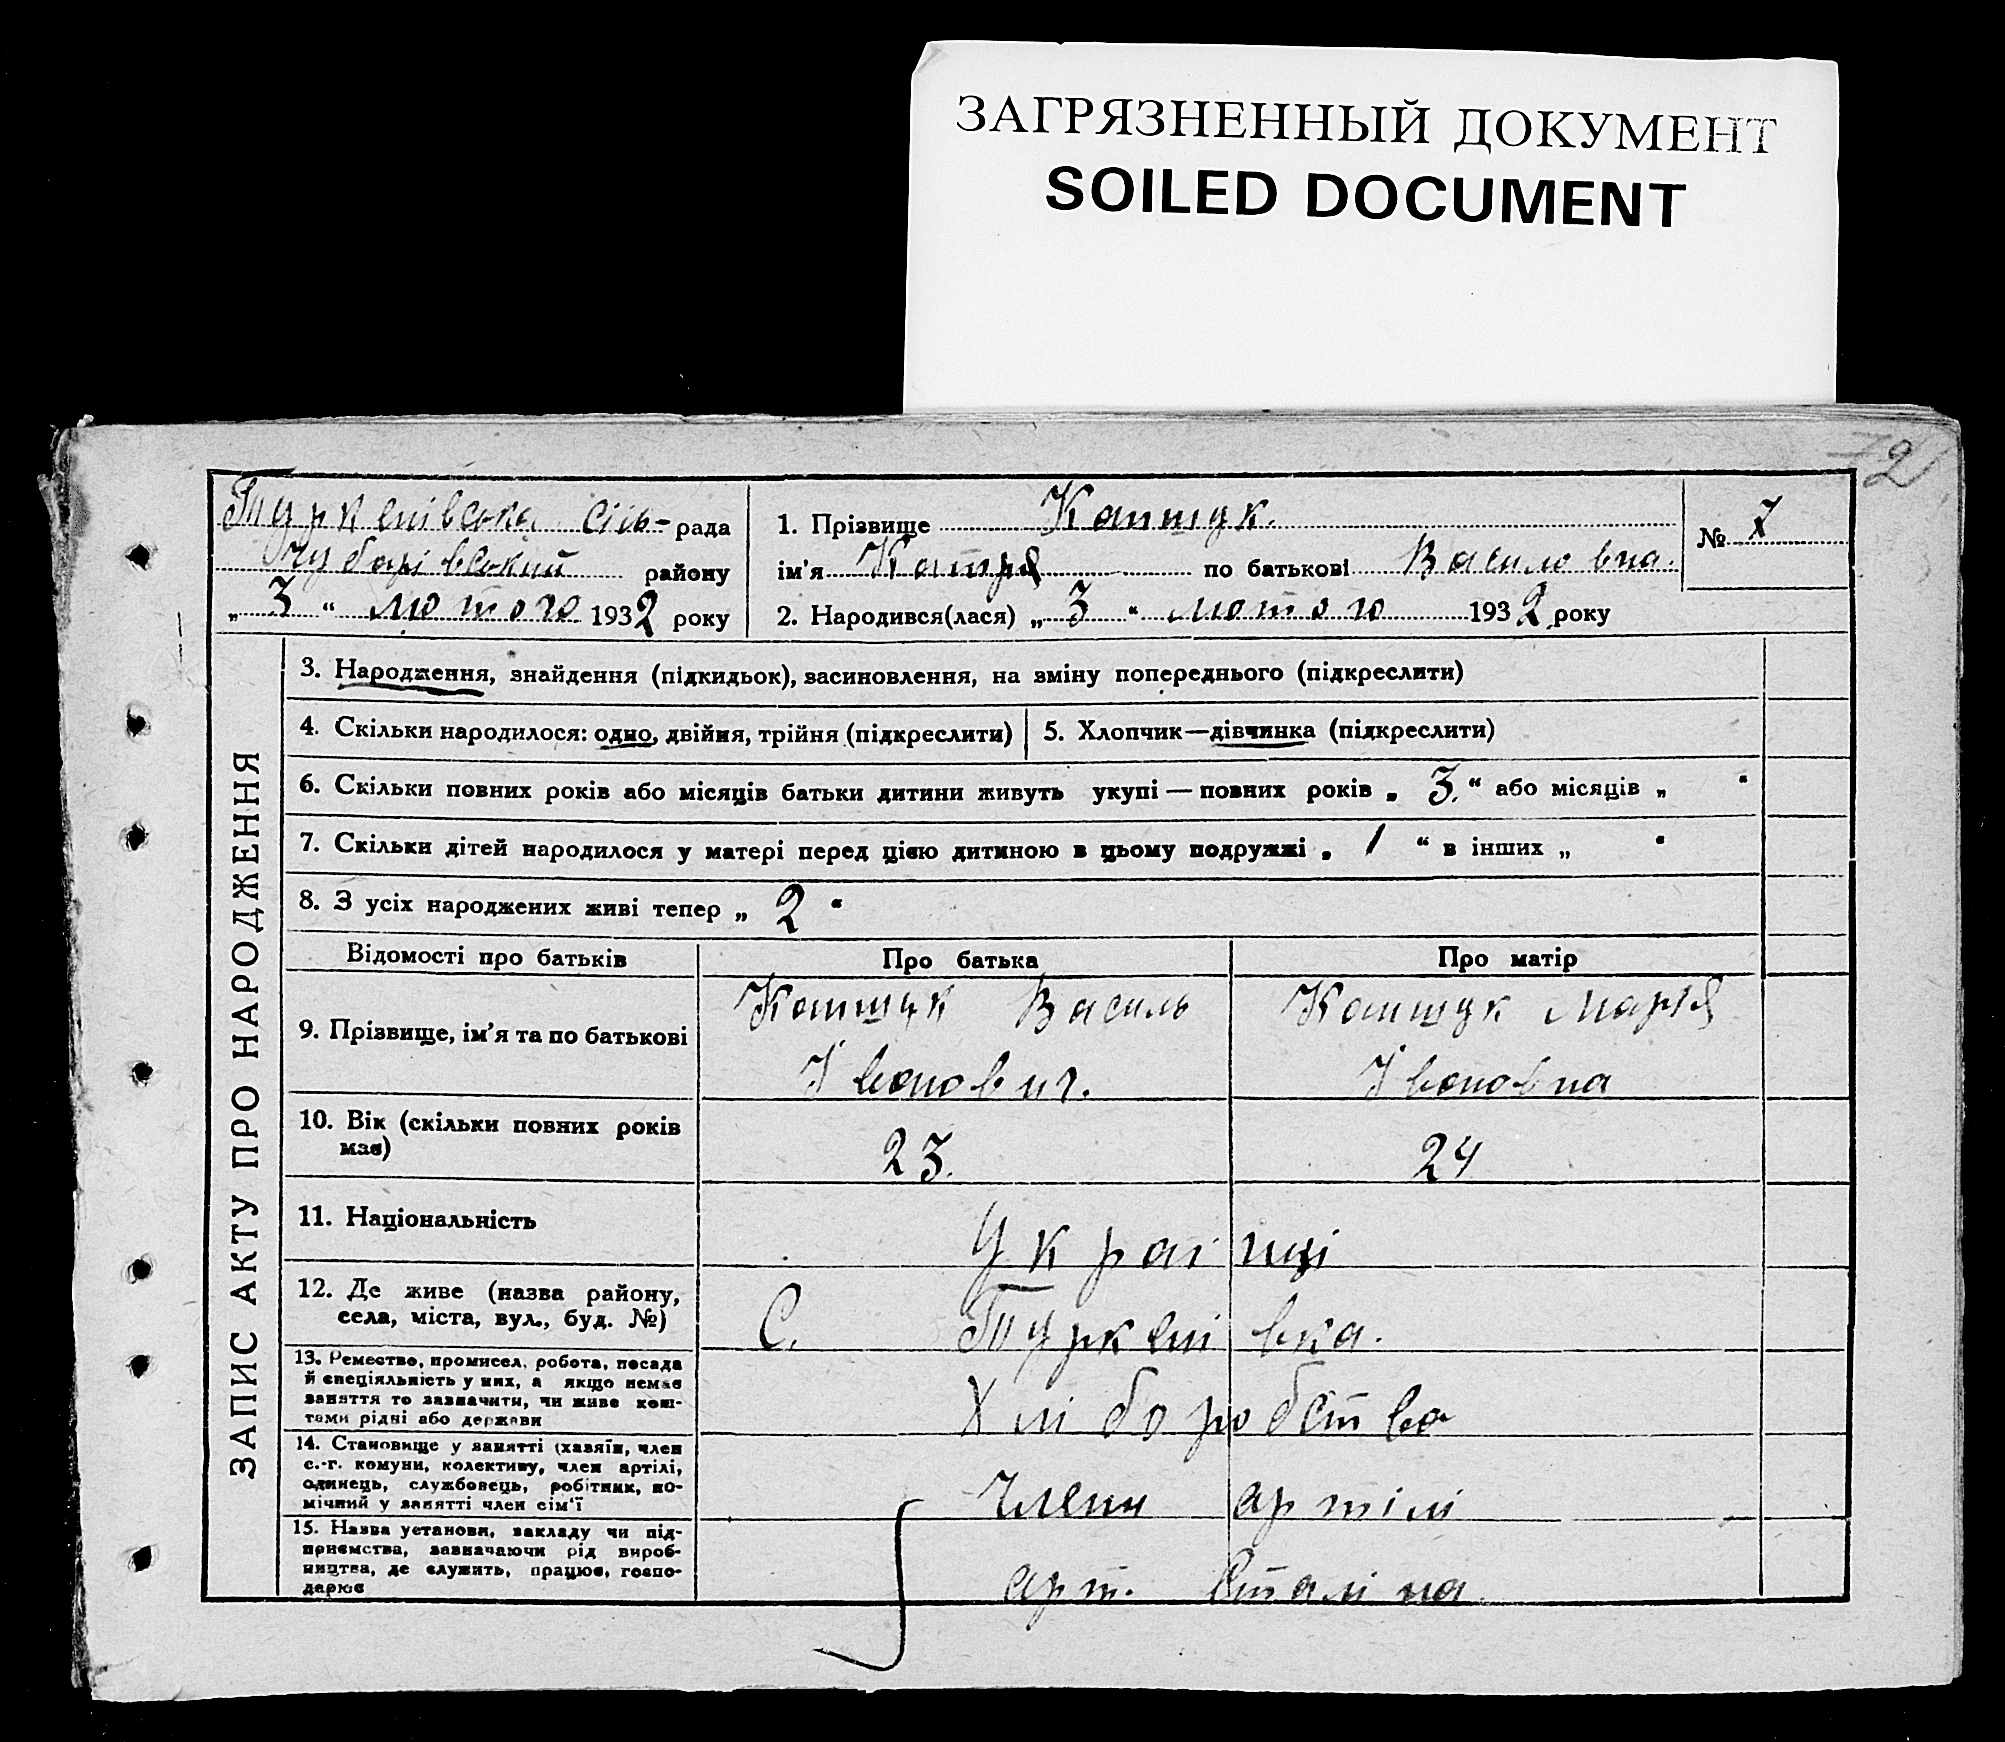 ЗАГРЯЗНЕННЫЙ ДОКУМЕНТ
SOILED DOCUMENT
72
Туркенівська сіль- рада
Чубарівський району
„ 3 “ лютого 1932 року
1. Прізвище Капшук.
ім'я Катря по батькові Василовна.
2. Народився(лася) „ 3 “ лютого 1932 року
№ 7
ЗАПИС АКТУ ПРО НАРОДЖЕННЯ
3. Народження, знайдення (підкидьок), засиновлення, на зміну попереднього (підкреслити)
4. Скільки народилося: одно, двійня, трійня (підкреслити)
5. Хлопчик—дівчинка (підкреслити)
6. Скільки повних років або місяців батьки дитини живуть укупі — повних років „ 3. “ або місяців „ “
7. Скільки дітей народилося у матері перед цією дитиною в цьому подружжі „ 1 “ в інших „ “
8. З усіх народжених живі тепер „ 2 “
Відомості про батьків Про батька Про матір
9. Прізвище, ім'я та по батькові
Капшук Василь
Іванович.
Капшук Марія
Івановна
10. Вік (скільки повних років
має)
23. 24
11. Національність
Украінці
12. Де живе (назва району,
села, міста, вул., буд. №)
С. Туркенівка.
13. Ремество, промисел, робота, посада
й спеціяльність у них, а якщо немає
заняття то зазначити, чи живе кош-
тами рідні або держави
Хліборобства
14. Становище у занятті (хазяїн, член
с.-г. комуни, колективу, член артілі,
одинець, службовець, робітник, по-
мічний у занятті член сім'ї
Члени артілі
15. Назва установи, закладу чи під-
приємства, зазначаючи рід вироб-
ництва, де служить, працює, госпо-
дарює
арт. Сталіна.